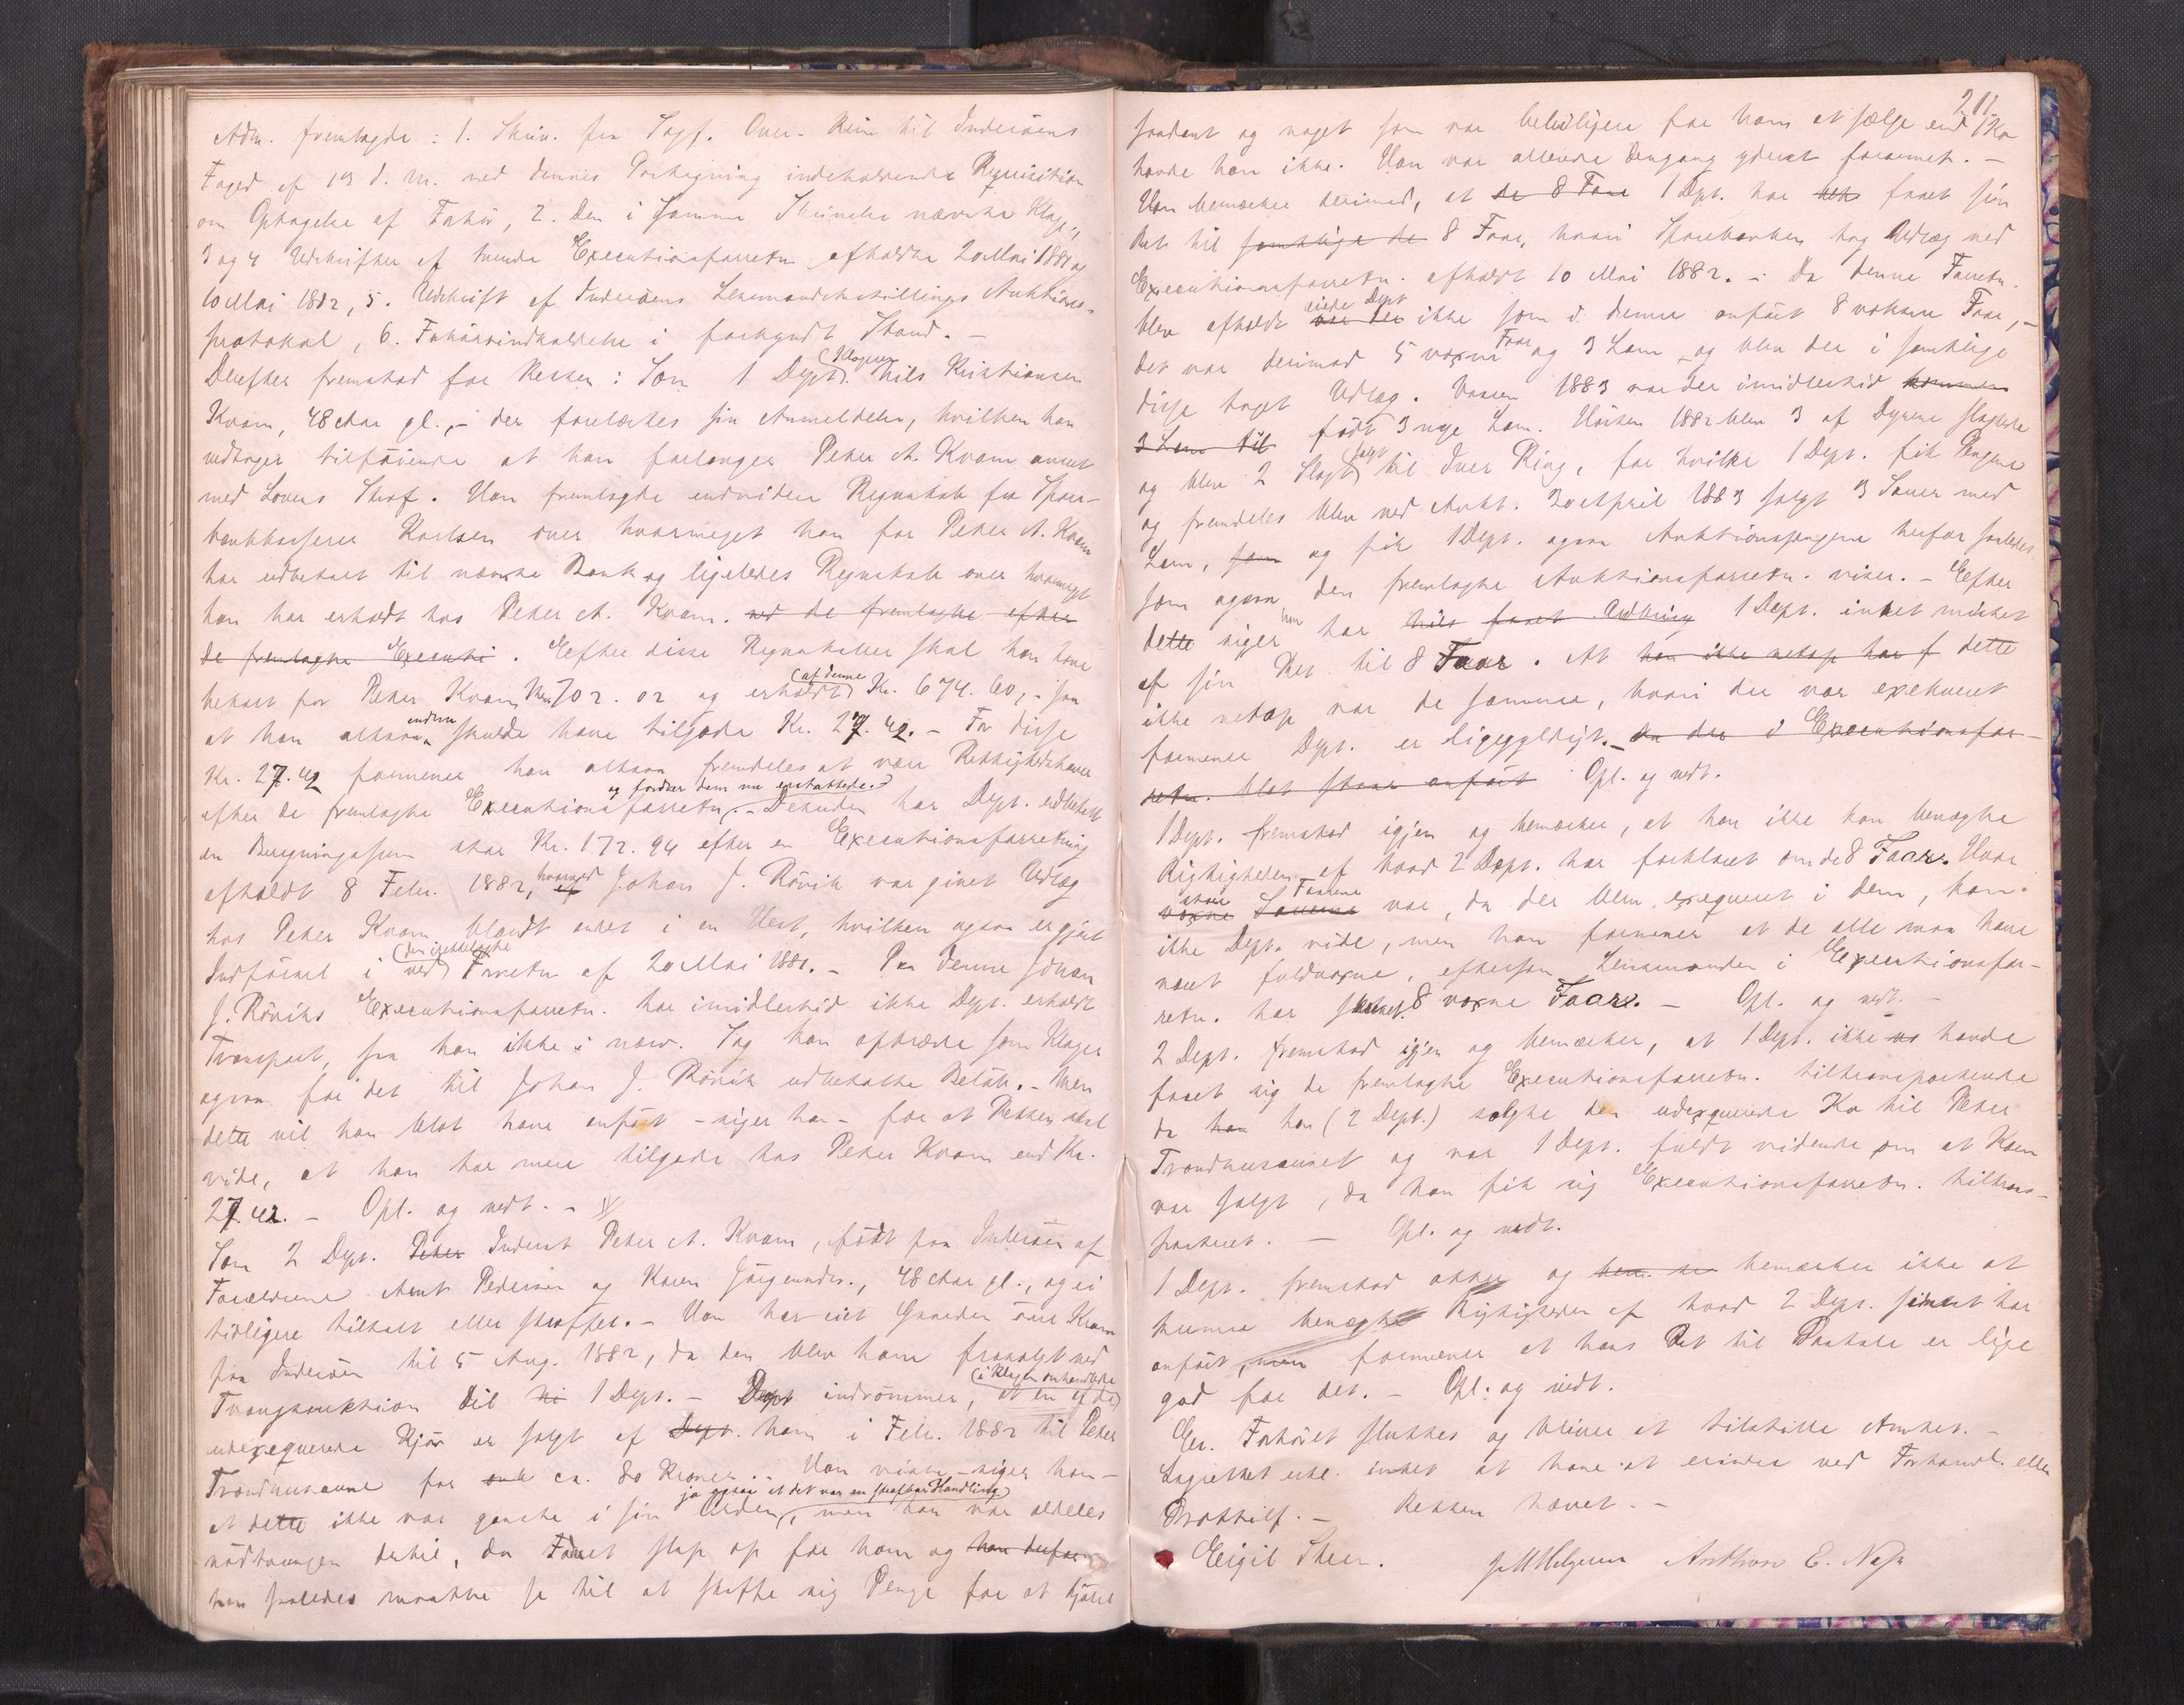 Adm. fremlagde: 1. Skriv. fra Sagf. Over-Rein til Inderøens
Foged af 19 d. M. med dennes Paategning indeholdende Requisition
om Optagelse af Forhör, 2. Den i samme Skrivelse nævnte Klage,
3 og 4 Udskrifter af tvende Executionsforretn. afholdte 20 Mai 1881 og
10 Mai 1882, 5. Udskrift af Inderöens Lensmandsbestillings Auktions-
protokol, 6. Forhörsindkaldelse i forkyndt Stand. –
Derefter fremstod for Retten: Som 1 Dept. (Klageren) Nils Kristiansen
Kvam, 48 Aar gl., – der forelæstes sin Anmeldelse, hvilken han
vedtager tilföiende at han forlanger Peter A. Kvam anseet
med Lovens Straf. Han fremlagde endvidere Regnskab fra Spare-
bankkasserer Karlsen over hvormeget han for Peter A. Kvam
har udbetalt til nævnte Bank og ligeledes Regnskab over hvormeget
han har erholdt hos Peter A. Kvam. ved de fremlagte efter
de fremlagte Executi. Efter disse Regnskaber skal han have
betalt for Peter Kvam Kr. 702.02 og erholdt (af denne) Kr. 674.60, – saa
at han altsaa endnu skulde have tilgode Kr. 27.42. – For disse
Kr. 27.42 formener han altsaa fremdeles at være Rettighedshaver
efter de fremlagte Executionsforretn. og fordrer dem nu erstattede. – Desuden har Dept. udbetalt
en Bergningssum stor Kr. 172.94 efter en Executionsforretning
afholdt 8 Febr. 1882, hvorved Johan J. Rövik var givet Udlæg
hos Peter Kvam blandt andet i en Hest, hvilken ogsaa er gjort
Indförsel i ved (den fremlagte) Forretn. af 20 Mai 1881. – Paa denne Johan
J. Röviks Executionsforretn. har imidlertid ikke Dept. erholdt
Transport, saa han ikke i nærv. Sag kan optræde som Klager
ogsaa for det til Johan J. Rövik udbetalte Belöb. – Men
dette vil han blot have anfört – siger han – for at Retten skal
vide, at han har mere tilgode hos Peter Kvam end Kr.
27.42. – Opl. og vedt. –
Som 2 Dept. Peter Inderst Peter A. Kvam, födt paa Inderöen af
Forældrene Arnt Pedersen og Karen Jörgensdr., 48 Aar gl., og ei
tidligere tiltalt eller straffet. – Han har eiet Gaarden övre Kvam
paa Inderöen til 5 Aug. 1882, da den blev ham frasolgt ved
Tvangsauktion til Ni 1 Dept. – Dept indrömmer, at en af de (i Klagen omhandlede)
udexequerede Kjör er solgt af Dept. ham i Febr. 1882 til Peter
Trondhusaune for ca. 80 Kroner. – Han vidste – siger han –
at dette ikke var ganske i sin Orden, ja ogsaa at det var en strafbar Handling, men han var aldeles
nödtvungen dertil, da Foret slap op for ham og han derfor
han saaledes maatte se til at skaffe sig Penge for at kjöbe
211.
saadant og noget som var beleiligere for ham at sælge end 1 Ko
havde han ikke. Han var allerede dengang yderst forarmet. –
Han bemærker derimod, at de 8 Faar 1 Dept. har faaet sin
Ret til samtlige de 8 Faar, hvori Sparebanken tog Udlæg ved
Executionsforretn. afholdt 10 Mai 1882. – Da denne Forretn.
blev afholdt var der eiede Dept ikke som i denne anfört 8 voksne Faar, –
det var derimod 5 voxne Faar og 3 Lam og blev der i samtlige
disse taget Udlæg. Vaaren 1883 var der imidlertid kommen
3 Lam til födt 3 nye Lam. Hösten 1882 blev 3 af Dyrene slagtede
og blev 2 Slagt solgt til Iver Ring, for hvilke 1 Dept. fik Pengene
og fremdeles blev ved Aukt. 30 April 1883 solgt 3 Sauer med
Lam, som og fik 1 Dept. ogsaa Auktionspengene herfor saaledes
som ogsaa den fremlagte Auktionsforretn. viser. – Efter
dette siger han har Nils faaet Udbring 1 Dept. intet mistet
af sin Ret til 8 Faar. At han ikke netop har f dette
ikke netop var de samme, hvori der var exekveret
formener Dept. er ligegyldigt. – da der i Executionsfor-
retn. blot staar anfört Opl. og vedt.
1 Dept. fremstod igjen og bemærker, at han ikke kan benægte
Rigtigheden af hvad 2 Dept. har forklaret om de 8 Faar. Hvor
voxne Sauerne store Faarene var, da der blev exequeret i dem, kan
ikke Dept. vide, men han formener at de alle maa have
været fuldvoxne, eftersom Lensmanden i Executionsfor-
retn. har skrevet 8 voxne Faar. – Opl. og vedt. –
2 Dept. fremstod igjen og bemærker, at 1 Dept. ikke havde
faaet sig de fremlagte Executionsforretn. tiltransporterede
da han han (2 Dept.) solgte den udexquerede Ko til Peter
Trondhusaunet og var 1 Dept. fuldt vidende om at Koen
var solgt, da han fik sig Executionsforretn. tiltrans-
porteret. – Opl. og vedt.
1 Dept. fremstod atter og bemærker ikke at
kunne benægte Rigtigheden af hvad 2 Dept. sidst har
anfört, men formener at hans Ret til Paatale er lige
god for det. – Opl. og vedt.
Er. Forhöret sluttes og bliver at tilstille Amtet. –
Lagrettet erkl. intet at have at erindre ved Forhandl. eller
Prottilf. – Retten hævet. –
Eigil Steen. Anthon E. Næss